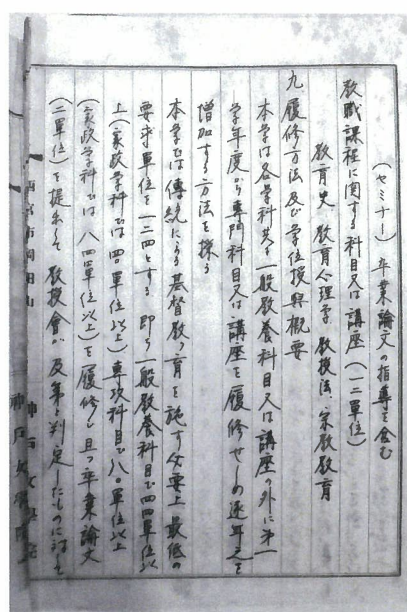 （セミナー）卒業論文の指導を含む
教職課程に関する科目又は講座（一二單位）
教育史、教育心理学、教授法、宗教教育
九、履修方法及び学位授與概要
本学は各学科共一般教養科目又は講座の外に第一
学年度から専門科目又は講座を履修せしめ逐年之を
増加する方法を採る
本学では傳統による基督教々育を施す必要上最低の
要求單位を一二四とする 即ち一般教養科目で四四單位以
上（家政学科では四〇單位以上）専攻科目で八〇單位以上
（家政学科では八四單位以上）を履修し且つ卒業論文
（二單位）を提出して教授会が及第と判定したものに対して
西宮市岡田山
神戸女学院